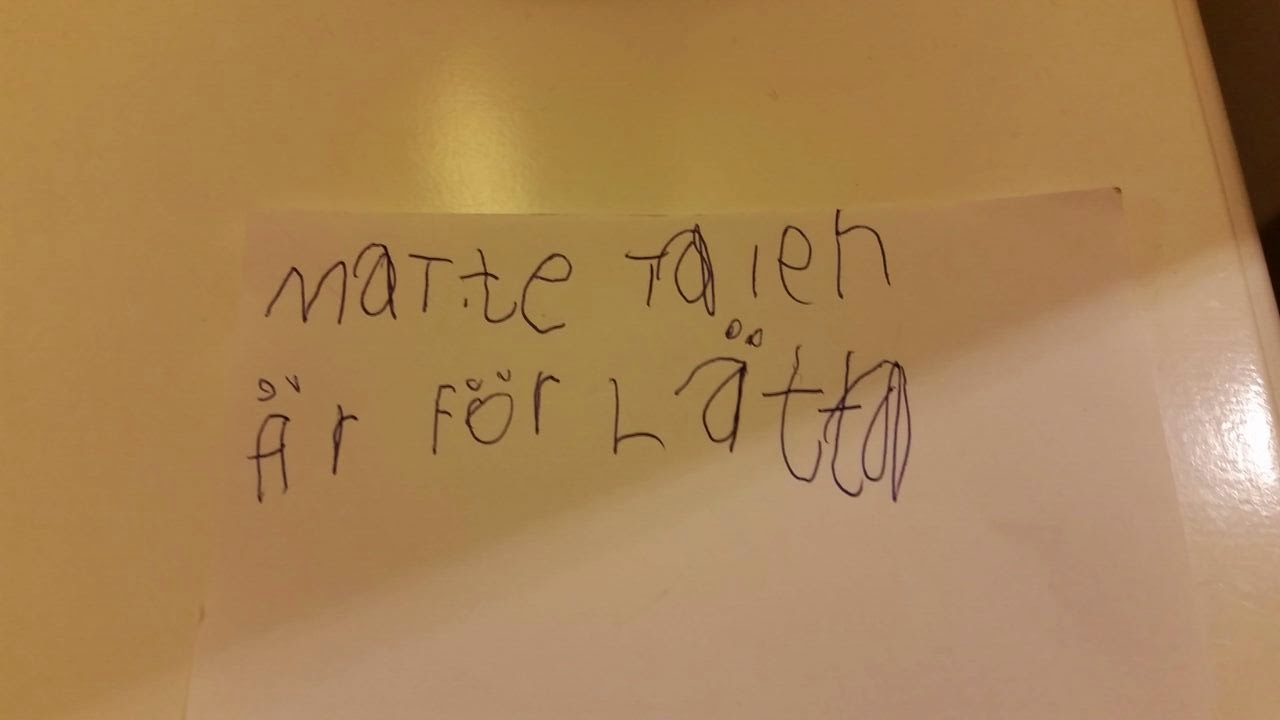 MATTE TALEN
ÄR FÖR LÄTTA